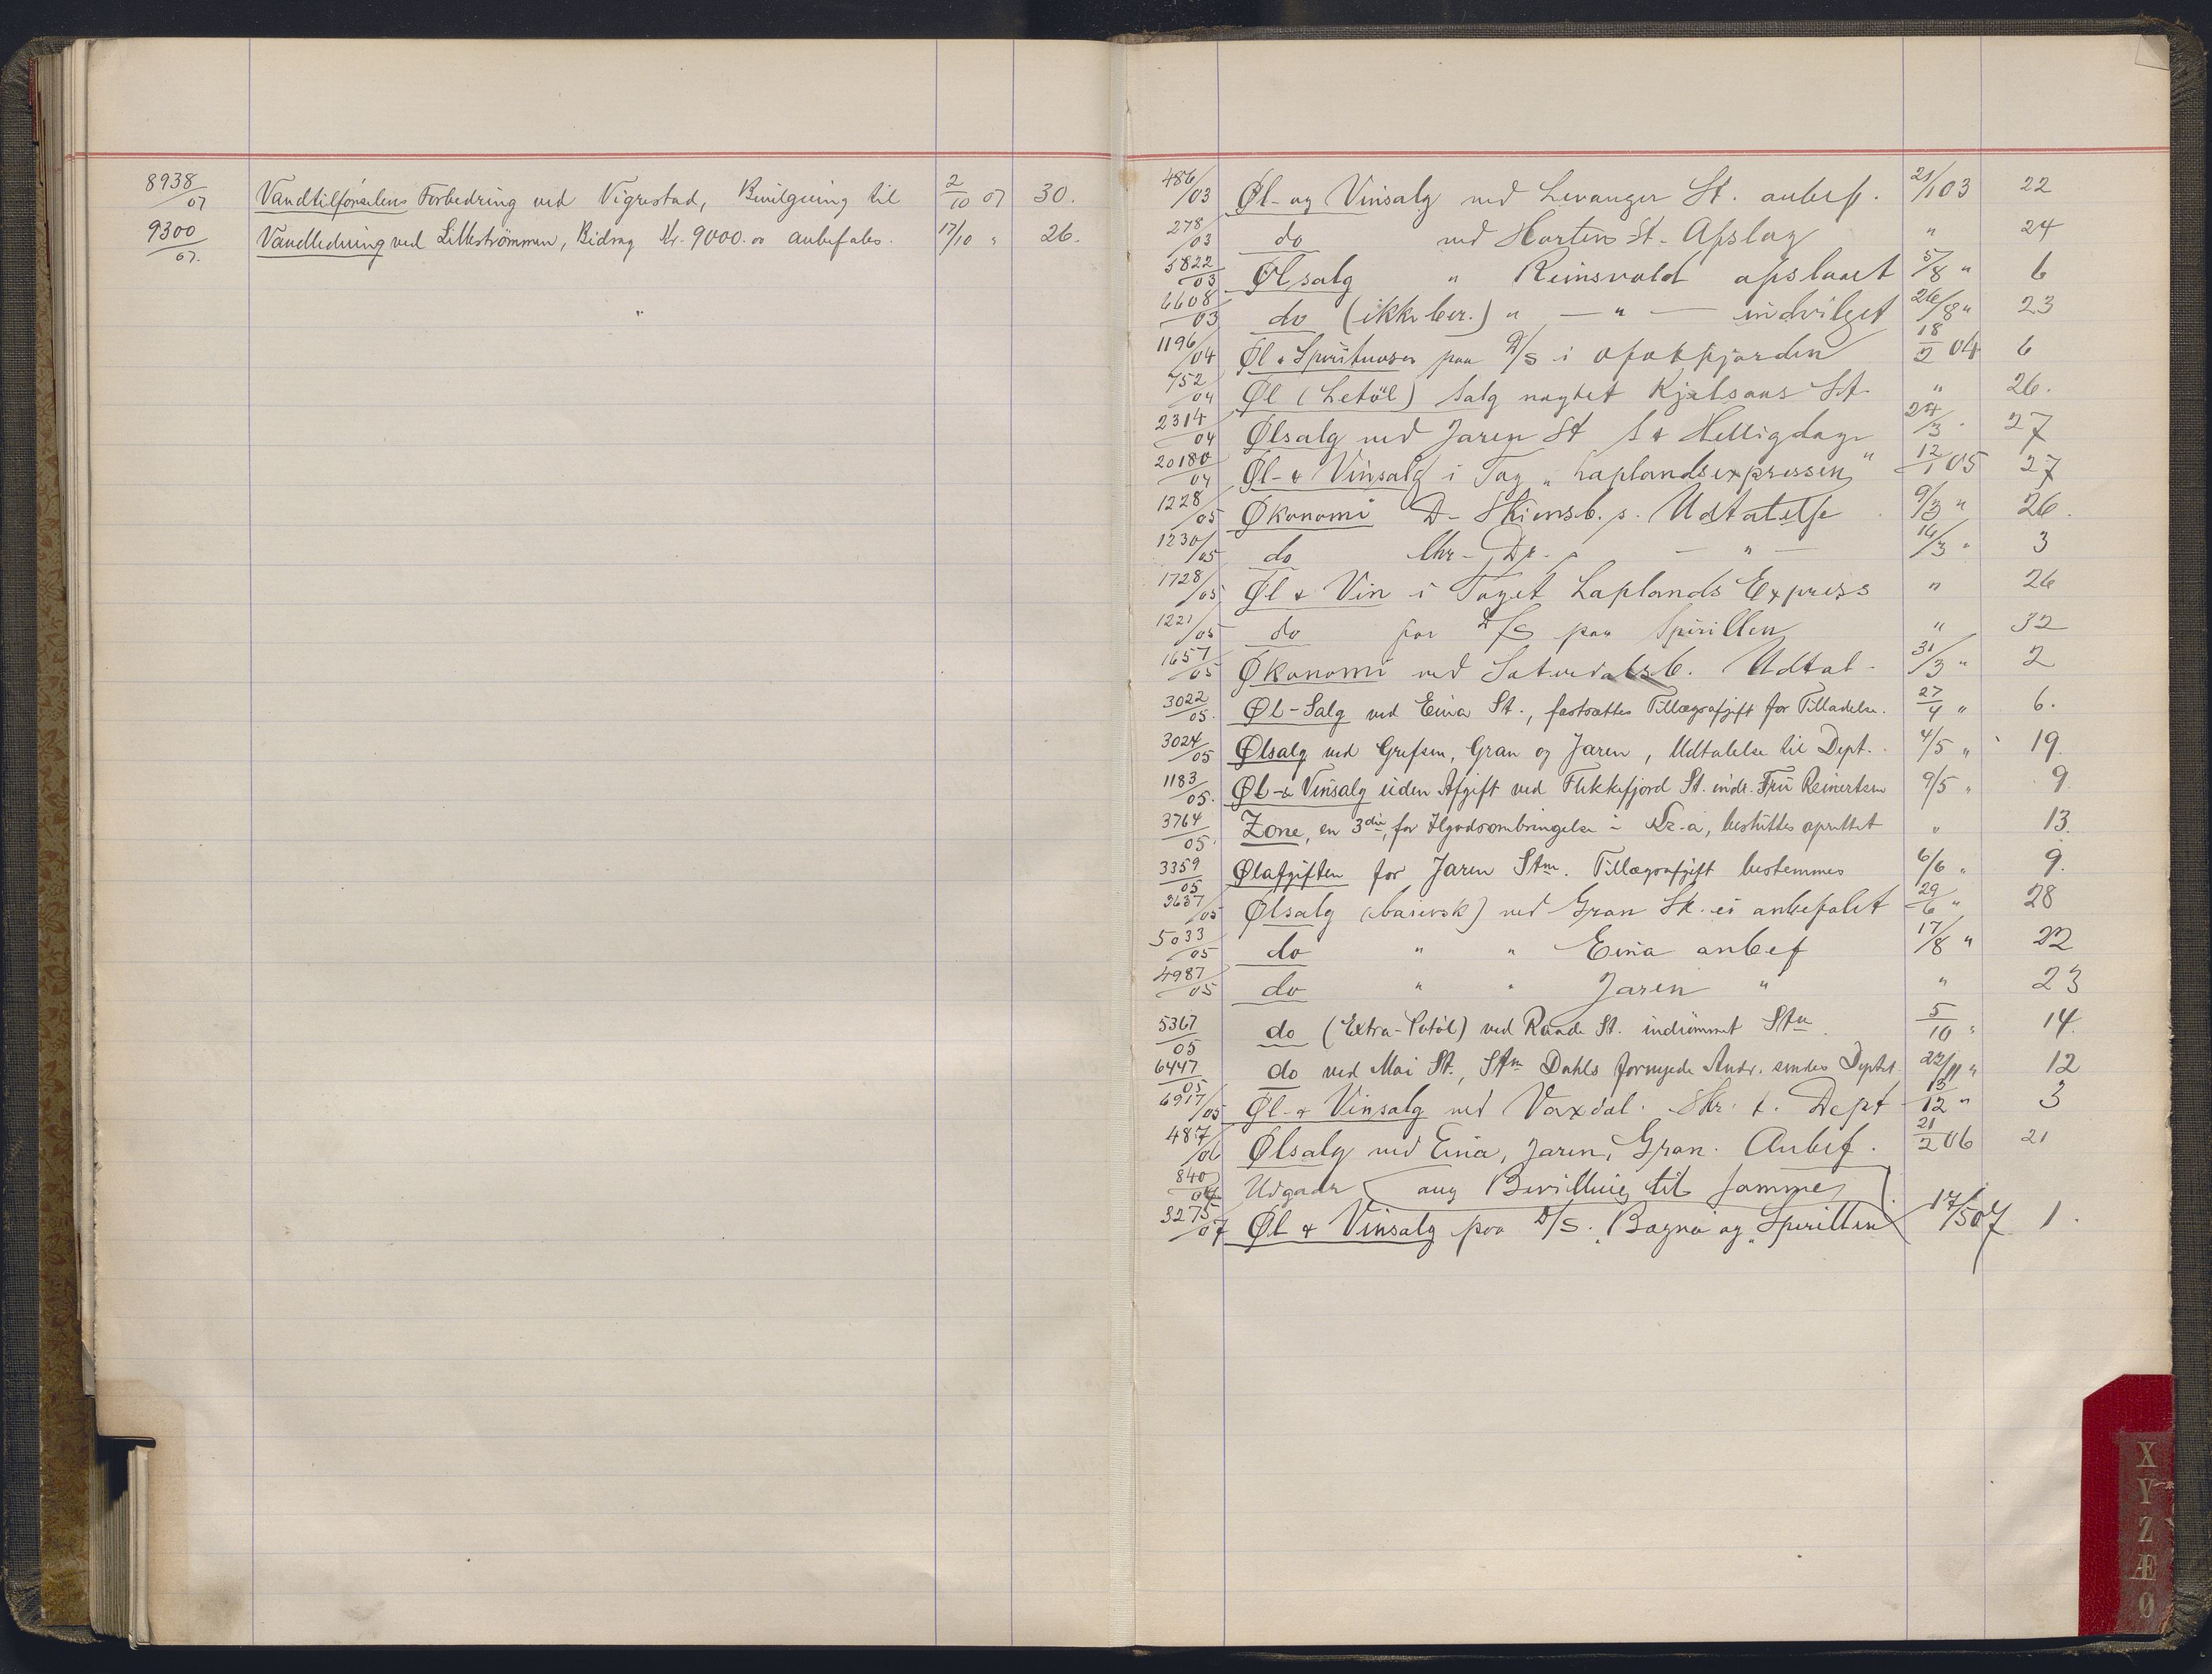 8938/07 Vandtilförselens Forbedring ved Vigrestad, Bevilgning til 2/10 07 30.
9300/07. Vandledning ved Lilleströmmen, Bidrag Kr. 9000.00 anbefales. 17/10 " 26.
486/03 Øl- og Vinsalg ved Levanger St. anbef. 21/1 03 22
278/03 do ved Horten St. Afslag " 24
5822/03 Ølsalg " Reinsvold afslaaet 5/8 " 6
6608/03 do (ikke ber.) " — " — indvilget 26/8 " 23
1196/04 Øl & Spirituoser paa D/S i Ofotfjorden 18/2 04 6
752/04 Øl (Letöl) Salg nægtet Kjelsaas St " 26.
2314/04 Ølsalg ved Jaren St S & Helligdage 24/3 " 27
20180/04 Øl- & Vinsalg i Tog "Laplandsexpressen" 12/1 05 27
1228/05 Økonomi D- Skiensb. s. Udtalelse 9/3 " 26.
1230/05 do Chr- Dr. s — " — 16/3 " 3
1728/05 Øl & Vin i Toget Laplands Express " 26
1221/05 do for D/S paa Spirillen " 32
1657/05 Økonomi ved Sætersdalsb. Udtal. 31/3 " 2
3022/05. Øl-Salg ved Eina St., fastsættes Tillægsafgift for Tilladelse. 27/4 " 6.
3024/05 Ølsalg ved Grefsen, Gran og Jaren, Udtalelse til Dept. 4/5 " 19.
1183/05. Øl- & Vinsalg uden Afgift ved Flekkefjord St. indr. Fru Reinertsen 9/5 " 9
3764/05. Zone, en 3die, for Ilgodsombringelse i Kr.a, besluttes oprettet " 13.
3359/05 Ølafgiften for Jaren Stm. Tillægsafgift bestemmes 6/6 " 9.
3637/05 Ølsalg (baiersk) ved Gran St. ei anbefalet 29/6 " 28
5033/05 do " " Eina anbef 17/8 " 22
4987/05 do " " Jaren " " 23
5367/05 do (Extra-Potöl) ved Raade St. indrömmet Stm. 5/10 " 14.
6447/05 do ved Moi St., Stm Dahls fornyede Andr. sendes Deptet. 22/11 " 12
6917/05 Øl- & Vinsalg ved Vaxdal. Skr. t. Dept 13/12 " 3
487/06 Ølsalg ved Eina, Jaren, Gran. Anbef. 21/2 06 21
840 Udgaar ang Bevilling til samme
3275/07 Øl & Vinsalg paa D/S. "Bægna og "Spirillen 17/5 07 1.
X
Y
Z
Æ
Ø